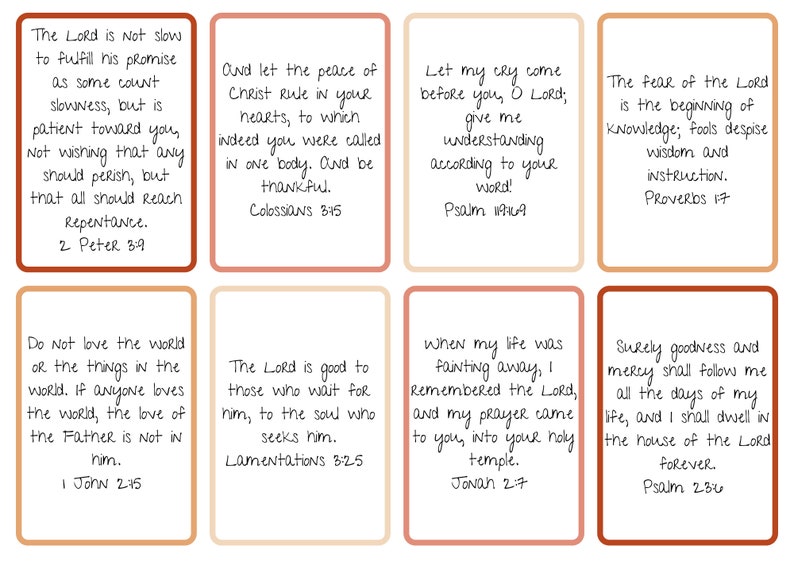 The Lord is not slow
to fulfill his promise
as some count
slowness, but is
patient toward you,
not wishing that any
should perish, but
that all should reach
repentance.
2 Peter 3:9
And let the peace of
Christ rule in your
hearts, to which
indeed you were called
in one body. And be
thankful.
Colossians 3:15
Let my cry come
before you, O Lord;
give me
understanding
according to your
word!
Psalm 119:169
The fear of the Lord
is the beginning of
knowledge; fools despise
wisdom and
instruction.
Proverbs 1:7
Do not love the world
or the things in the
world. If anyone loves
the world, the love of
the Father is not in
him.
1 John 2:15
The Lord is good to
those who wait for
him, to the soul who
seeks him.
Lamentations 3:25
When my life was
fainting away, I
remembered the Lord,
and my prayer came
to you, into your holy
temple.
Jonah 2:7
Surely goodness and
mercy shall follow me
all the days of my
life, and I shall dwell in
the house of the Lord
forever.
Psalm 23:6